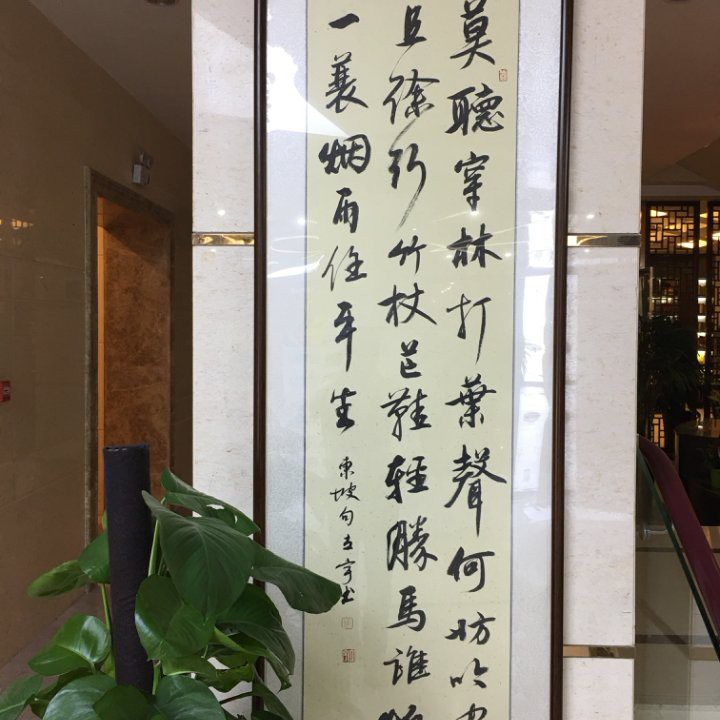 莫聽穿林打葉聲何妨吟
且徐行竹杖芒鞋輕勝馬誰
一蓑烟雨任平生
東坡句